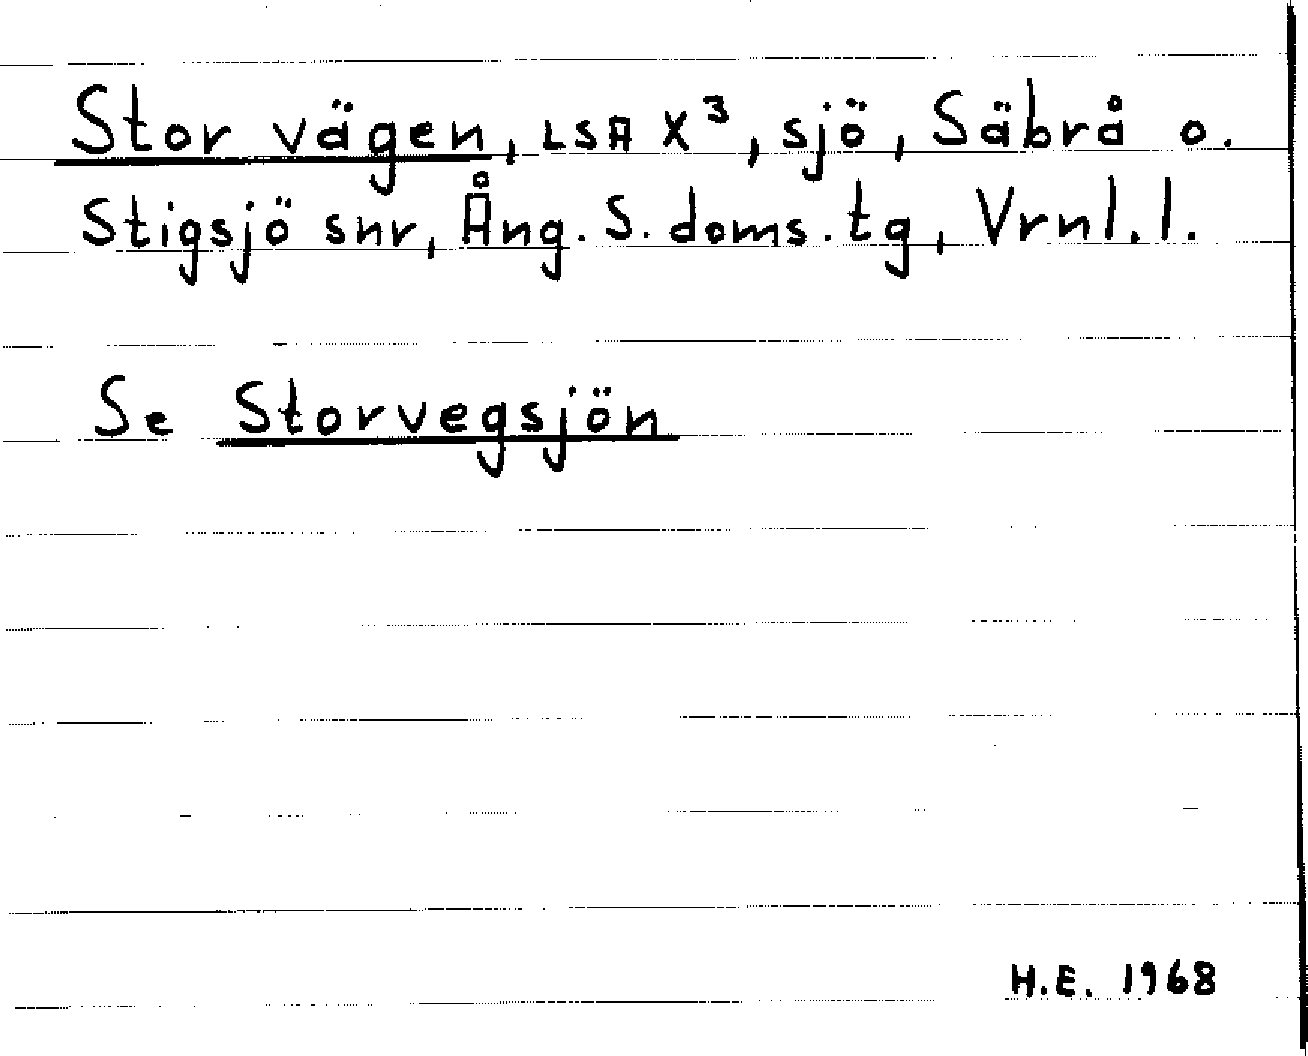 Stor vägen, LSA X³, sjö, Säbrå o.
Stigsjö snr, Ång. S. doms. tg, Vrnl. l.
Se Storvegsjön
H.E. 1968